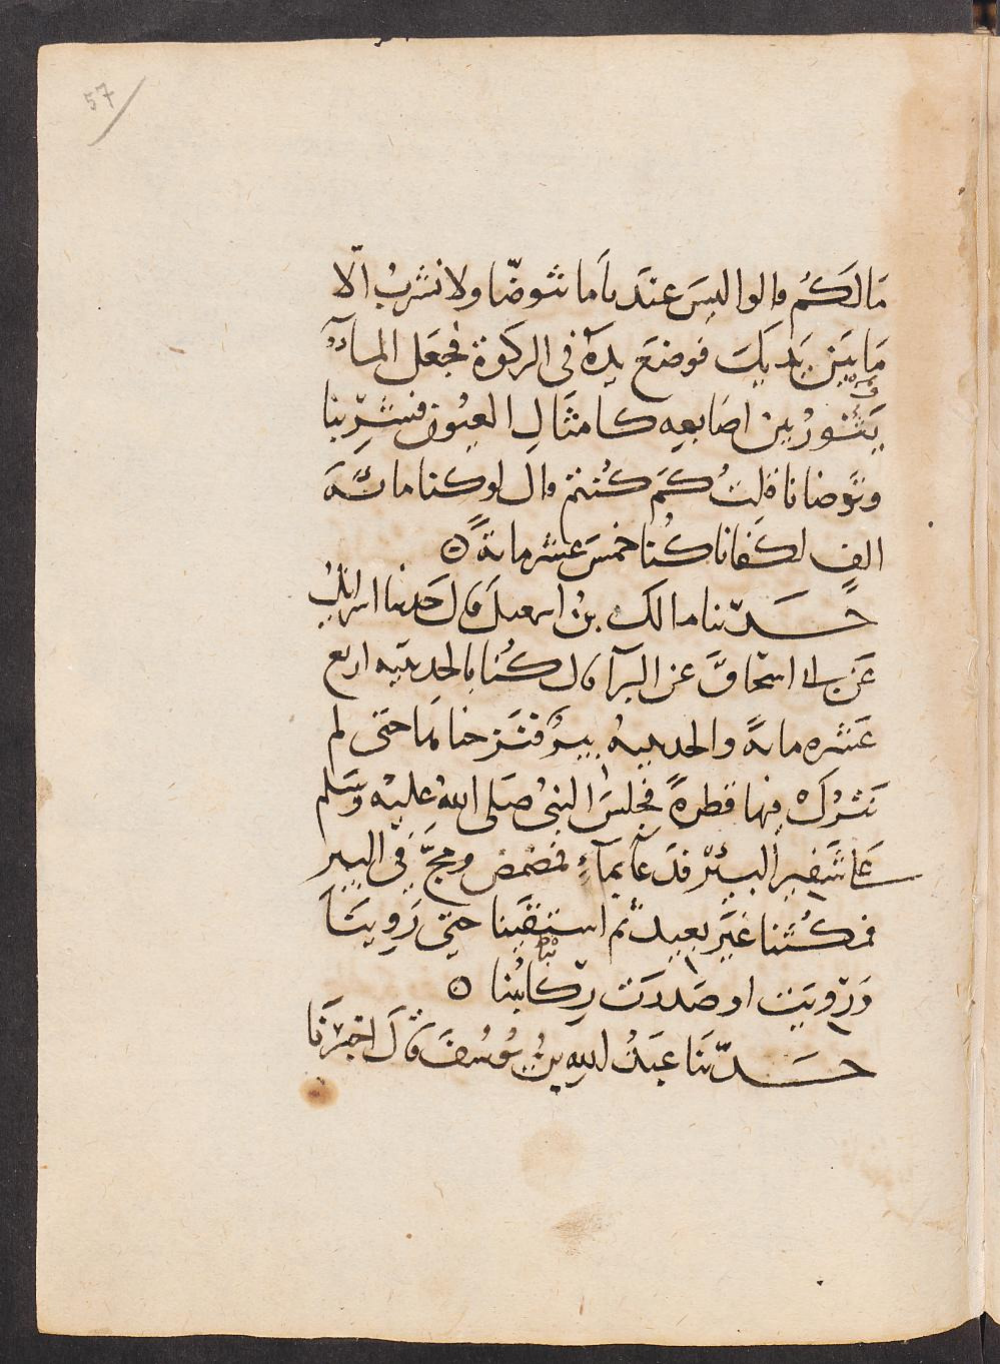 57
مَالَكُم قالوا ليسَ عندَنا ما نتوضّا ولا نشربُ الّا
مَا بَيَن يَديَكَ فوضعَ يدهَ فى الركوة فجعَل المآء
يَثُورُ بين اصَابعِه كامثَالِ العِيُونِ فشَرِبنا
وتوضانا قلتُ كَم كُنتم قال لو كنا مائَة
الفٍ لكفانا كُنا خمسَ عشر مائةً ٥
حَدّثنا مالك بنُ اسمعيلَ قال حَدثنا اسرائيلُ
عَن ابى اسحَاقَ عن البرآ قال كُنا بالحديبيه اربع
عَشره مائةً والحديبيهُ بيرٌ فنَزحناهَا حتى لم
نَترُك فيها قطرهً فجلسَ النبىُ صَلى اللهُ عليْه وسَلم
عَلى شَفِيرِ البيئر فدَعَا بمآءٍ فمضمض ومَجَّ فى البير
فمكُثنا غيَر بعيدٍ ثم استقَينا حتى رَوِينَا
ورَوِيَت او صَدرَت رِكابُنا ٥
حَدّثنَا عبَدُ اللهِ بنُ يُوسُفَ قَالَ اخبَرنَا